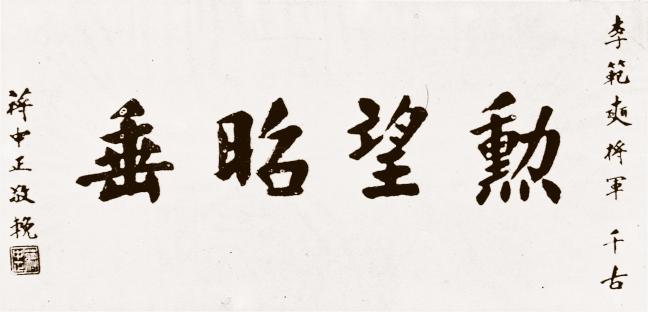 李範奭將軍 千古
勳望昭垂
蔣中正敬輓